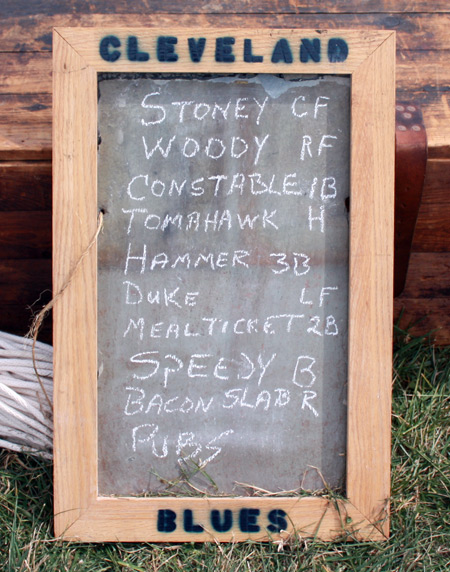 CLEVELAND
STONEY CF
WOODY RF
CONSTABLE 1B
TOMAHAWK H
HAMMER 3B
DUKE LF
MEALTICKET 2B
SPEEDY B
BACON SLAB R
PUBS
BLUES